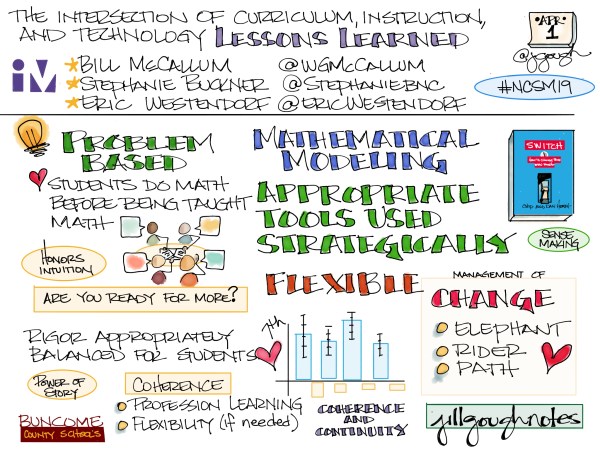 THE INTERSECTION OF CURRICULUM, INSTRUCTION,
AND TECHNOLOGY LESSONS LEARNED
APR
1
@jgough
IM
BILL McCALLUM @WGMcCALLUM
STEPHANIE BUCKNER @STEPHANIEBNC
ERIC WESTENDORF @ERICWESTENDORF
#NCSM19
PROBLEM
BASED
STUDENTS DO MATH
BEFORE BEING TAUGHT
MATH
HONORS
INTUITION
ARE YOU READY FOR MORE?
MATHEMATICAL
MODELING
APPROPRIATE
TOOLS USED
STRATEGICALLY
SWITCH
SENSE
MAKING
FLEXIBLE
MANAGEMENT OF
CHANGE
ELEPHANT
RIDER
PATH
RIGOR APPROPRIATELY
BALANCED FOR STUDENTS
7th
POWER OF
STORY
COHERENCE
PROFESSION LEARNING
FLEXIBILITY (if needed)
BUNCOME
COUNTY SCHOOLS
COHERENCE
AND
CONTINUITY
jillgoughnotes